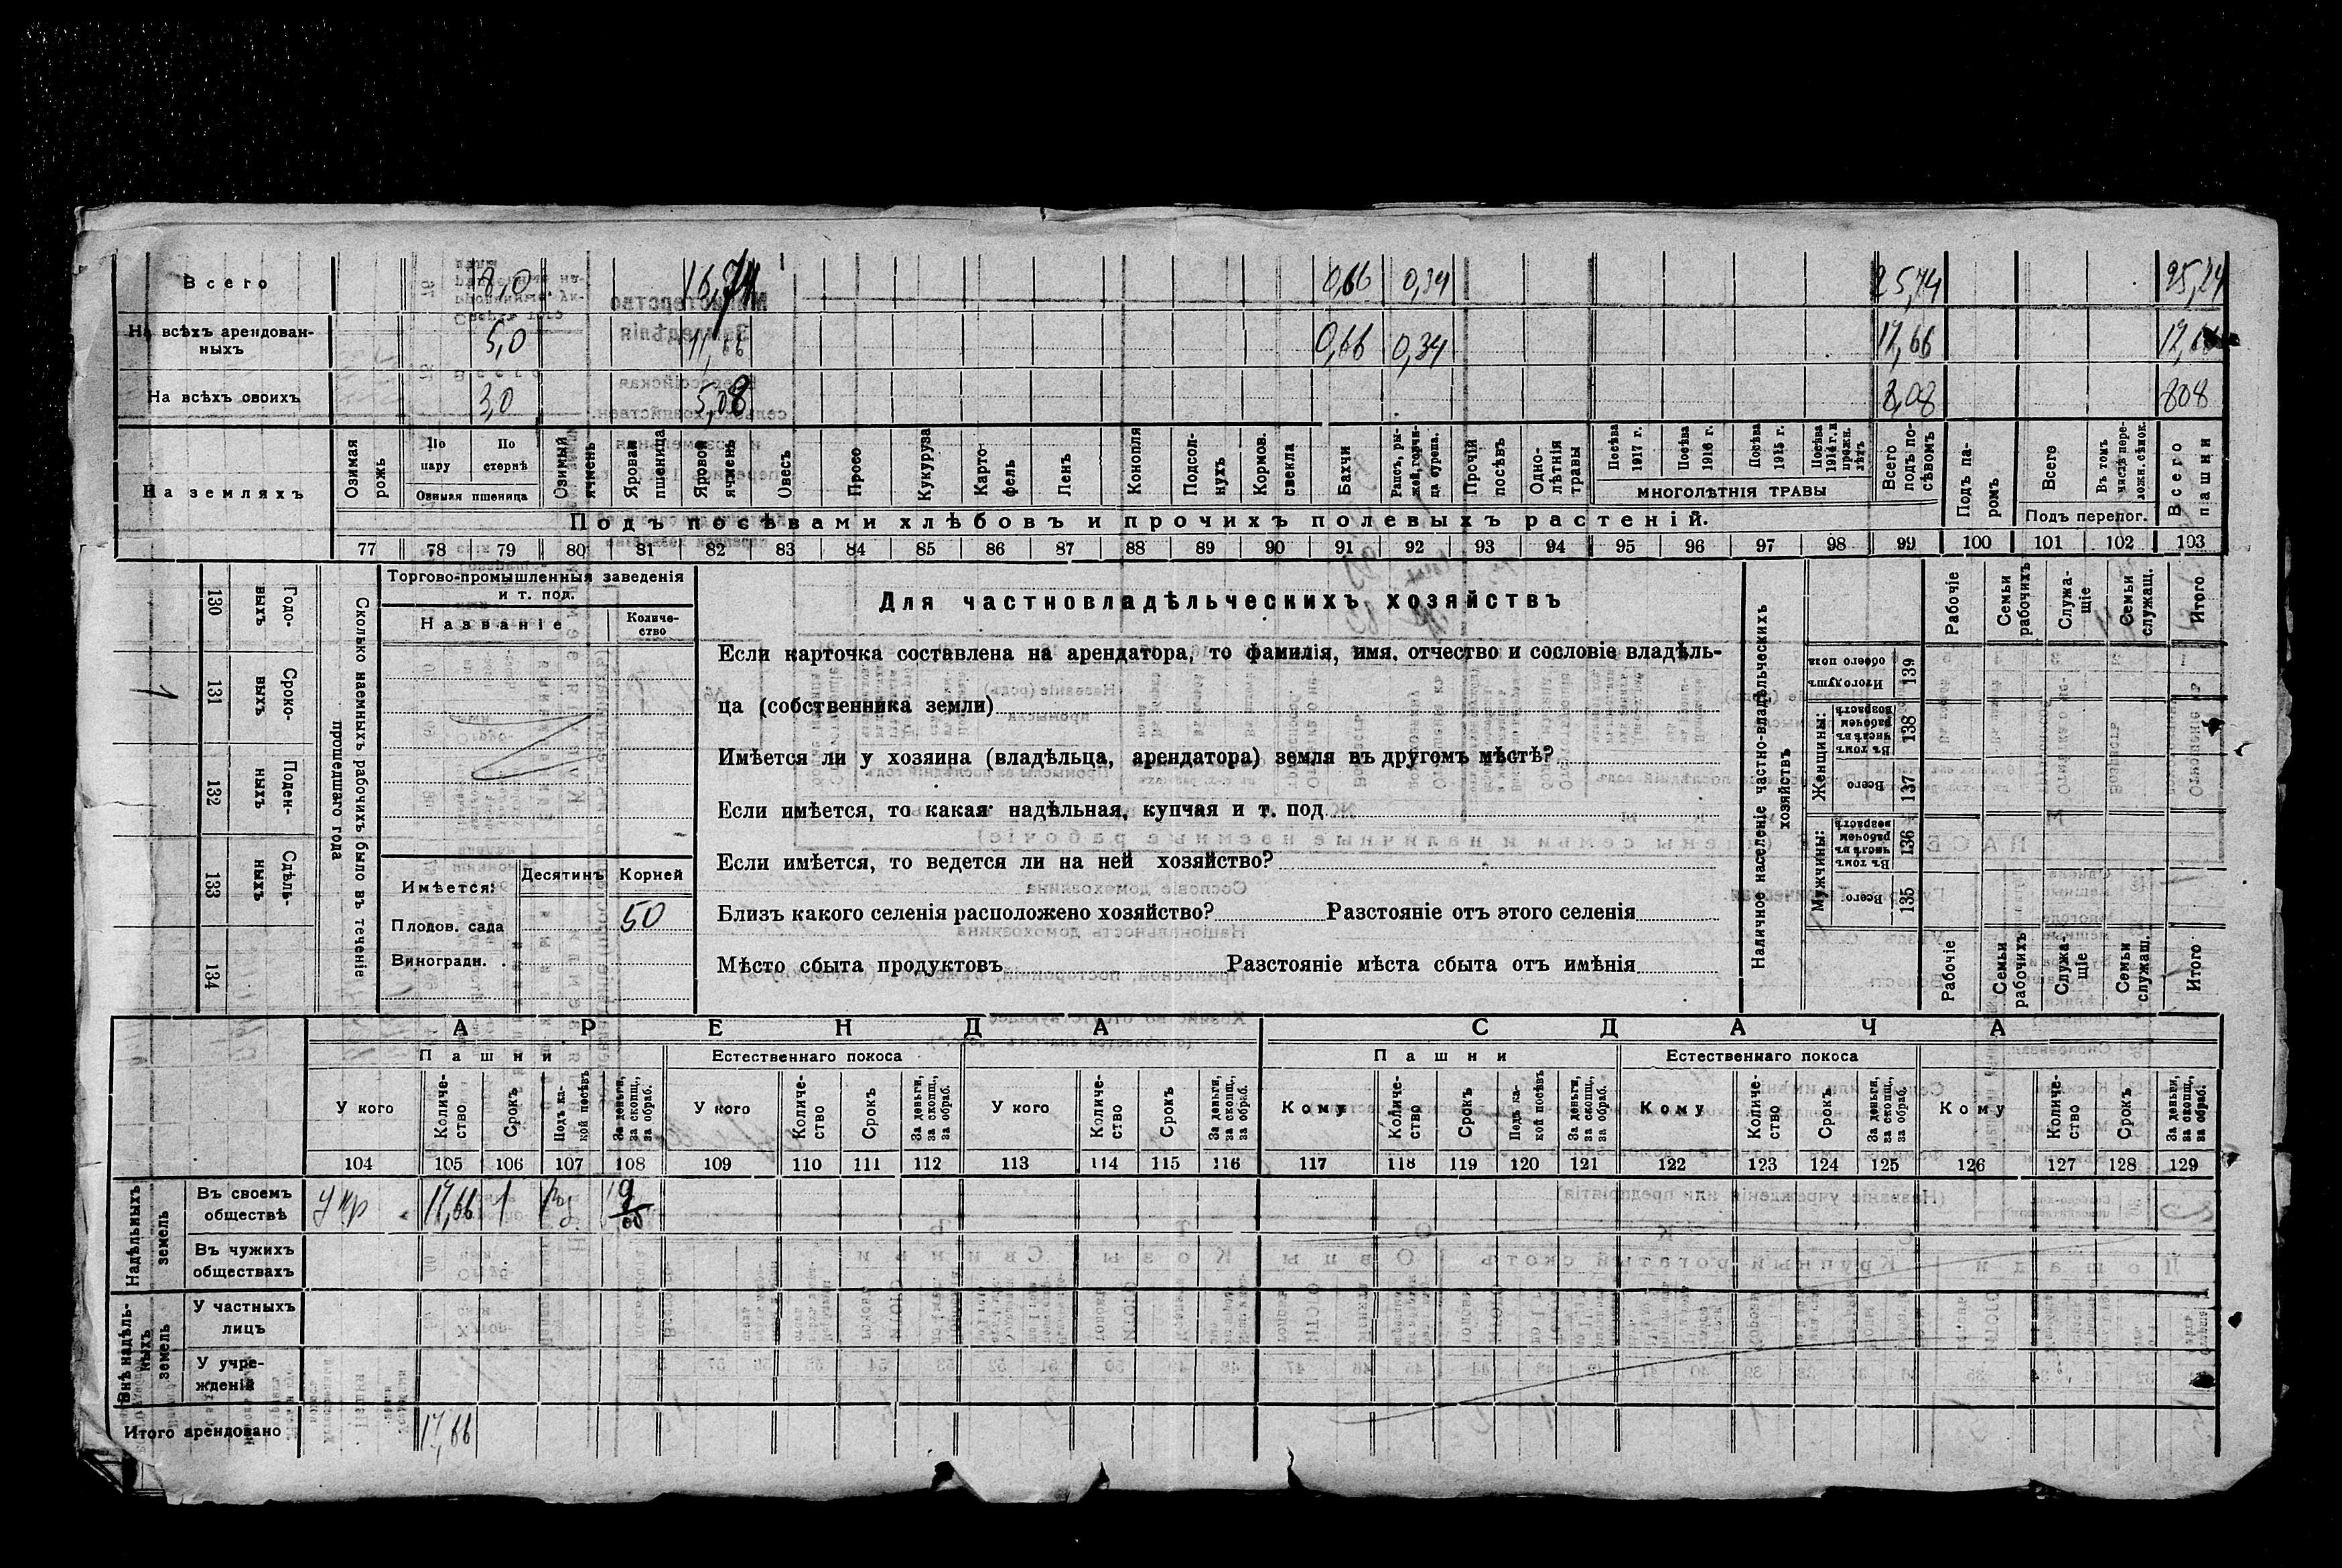 Всего 8,0 16,74 0,66 0,34 25,74 25,74
На всѣхъ арендован-
ныхъ 5,0 11,66 0,66 0,34 17,66 17,66
На всѣхъ своихъ 3,0 5,08 8,08 808
На земляхъ
Озимая рожь
По пару
По стернѣ
Озимая пшеница
Озимый ячмень
Яровая пшеница
Яровой ячмень
Овесъ
Просо
Кукуруза
Карто-
фель
Ленъ
Конопля
Подсол-
нухъ
Кормов. свекла
Бахчи
Рапсъ, ры-
жей, горчи-
ца сурепа.
Прочій посѣвъ
Одно-
лѣтнія травы
Посѣва 1917 г.
Посѣва 1916 г.
Посѣва 1915 г.
Посѣва 1914 г. и прежн. лѣтъ
МНОГОЛѢТНІЯ ТРАВЫ
Всего подъ по-
сѣвомъ
Подъ па-
ромъ
Всего
Въ томъ числѣ пере-
ложн. сѣнок.
Подъ перелог.
Всего пашни
Подъ посѣвами хлѣбовъ и прочихъ полевыхъ растеній.
77 78 79 80 81 82 83 84 85 86 87 88 89 90 91 92 93 94 95 96 97 98 99 100 101 102 103
Сколько наемныхъ рабочихъ было въ теченіе
прошедшаго года
Годо-
выхъ 130
Сроко-
выхъ 131 1
Поден-
ныхъ 132
Сдѣль-
ныхъ 133
134
Торгово-промышленныя заведенія
и т. под.
Названіе Количе-
ство
Имѣется: Десятинъ Корней
Плодов. сада 50
Виноградн.
Для частновладѣльческихъ хозяйствъ
Если карточка составлена на арендатора, то фамилія, имя, отчество и сословіе владѣль-
ца (собственника земли)
Имѣется ли у хозяина (владѣльца, арендатора) земля въ другомъ мѣстѣ?
Если имѣется, то какая: надѣльная, купчая и т. под
Если имѣется, то ведется ли на ней хозяйство?
Близъ какого селенія расположено хозяйство? Разстояніе отъ этого селенія
Мѣсто сбыта продуктовъ Разстояніе мѣста сбыта отъ имѣнія
Наличное населеніе частно-владѣльческихъ
хозяйствъ
Рабочіе
Семьи рабочихъ
Служа-
щіе
Семьи служащ.
Итого
Итого душъ обоего пола 139
Женщины:
Въ томъ числѣ въ рабочемъ возрастѣ 138
Всего 137
Мужчины:
Въ томъ числѣ въ рабочемъ возрастѣ 136
Всего 135
Рабочіе
Семьи рабочихъ
Служа-
щіе
Семьи служащ.
Итого
АРЕНДА СДАЧА
Пашни Естественнаго покоса Пашни Естественнаго покоса
У кого
Количе-
ство
Срокъ
Подъ ка-
кой посѣвъ
За деньги, за скопщ., за обраб.
У кого
Количе-
ство
Срокъ
За деньги, за скопщ., за обраб.
У кого
Количе-
ство
Срокъ
За деньги, за скопщ., за обраб.
Кому
Количе-
ство
Срокъ
Подъ ка-
кой посѣвъ
За деньги, за скопщ., за обраб.
Кому
Количе-
ство
Срокъ
За деньги, за скопщ., за обраб.
Кому
Количе-
ство
Срокъ
За деньги, за скопщ., за обраб.
104 105 106 107 108 109 110 111 112 113 114 115 116 117 118 119 120 121 122 123 124 125 126 127 128 129
Надѣльныхъ земель
Въ своемъ
обществѣ 17,66 1
Въ чужихъ
обществахъ
Внѣ надѣль-
ныхъ земель
У частныхъ
лицъ
У учре-
жденій
Итого арендовано 17,66